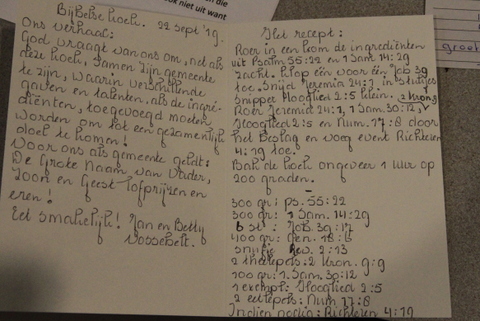 niet uit want
Bijbelse koek. 22 sept '19.
Ons verhaal:
God vraagt van ons om, net als
deze koek, samen zijn gemeente
te zijn, waarin verschillende
gaven en talenten, als de ingre-
diënten, toegevoegd moeten
worden om tot een gezamenlijk
doel te komen!
Voor ons als gemeente geldt:
De Grote Naam van Vader,
Zoon en Geest lofprijzen en
eren!
Eet smakelijk! Jan en Betty
Wosselelt.
Het recept:
Roer in een kom de ingrediënten
uit Psalm 55:22 en 1 Sam 14:29
zacht. Klop één voor één Job 39
toe. Snijd Jeremia 24:1 in stukjes
snipper Hooglied 2:5 klein. 2 Kron 9
Roer Jeremia 24:1, 1 Sam. 30:12
Hooglied 2:5 en Num. 17:8 door
het beslag en voeg event Richteren
4:19 toe.
Bak de koek ongeveer 1 uur op
200 graden.
300 gr: ps. 55:22
300 gr: 1 Sam. 14:29
6 st: Job. 39:17
400 gr: Gen. 18:6
snufje Lev. 2:13
2 theeleps: 2 Kron. 9:9
100 gr: 1 Sam. 30:12
1 exempl: Hooglied 2:5
2 eetleps: Num 17:8
Indien nodig: Richteren 4:19
groet